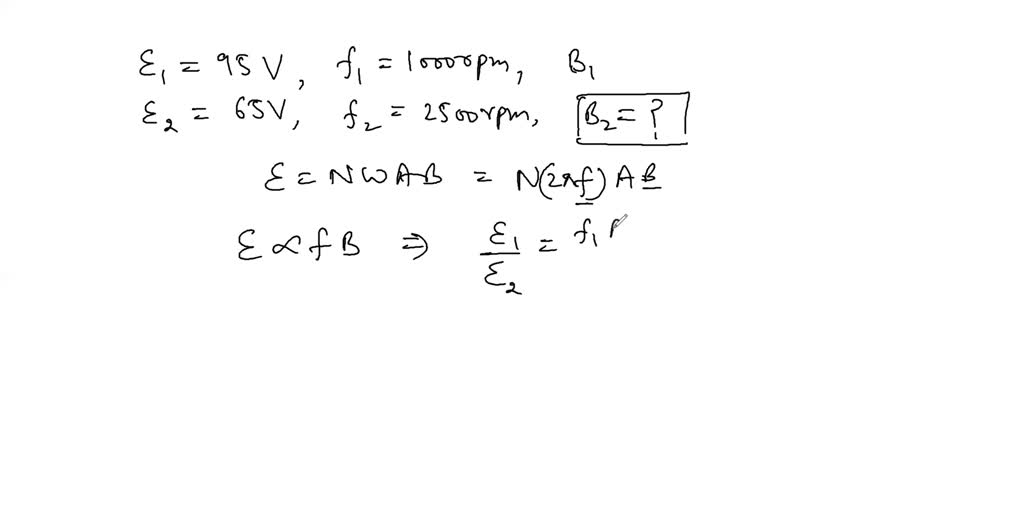 ε₁ = 95 V, f₁ = 1000rpm, B₁
ε₂ = 65V, f₂ = 2500rpm, B₂ = ?
ε = NωAB = N(2πf)AB
ε ∝ fB ⇒ ε₁/ε₂ = f₁